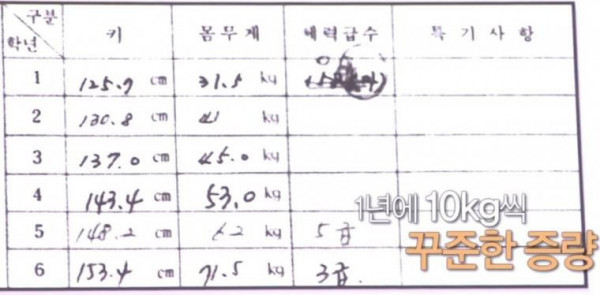 구분 학년 키 몸무게 체력급수 특기사항
1 125.7 cm 31.5 kg
2 130.8 cm 41 kg
3 137.0 cm 45.0 kg
4 143.4 cm 53.0 kg
5 148.2 cm 62 kg 5급
6 153.4 cm 71.5 kg 3급.
1년에 10kg씩
꾸준한 증량